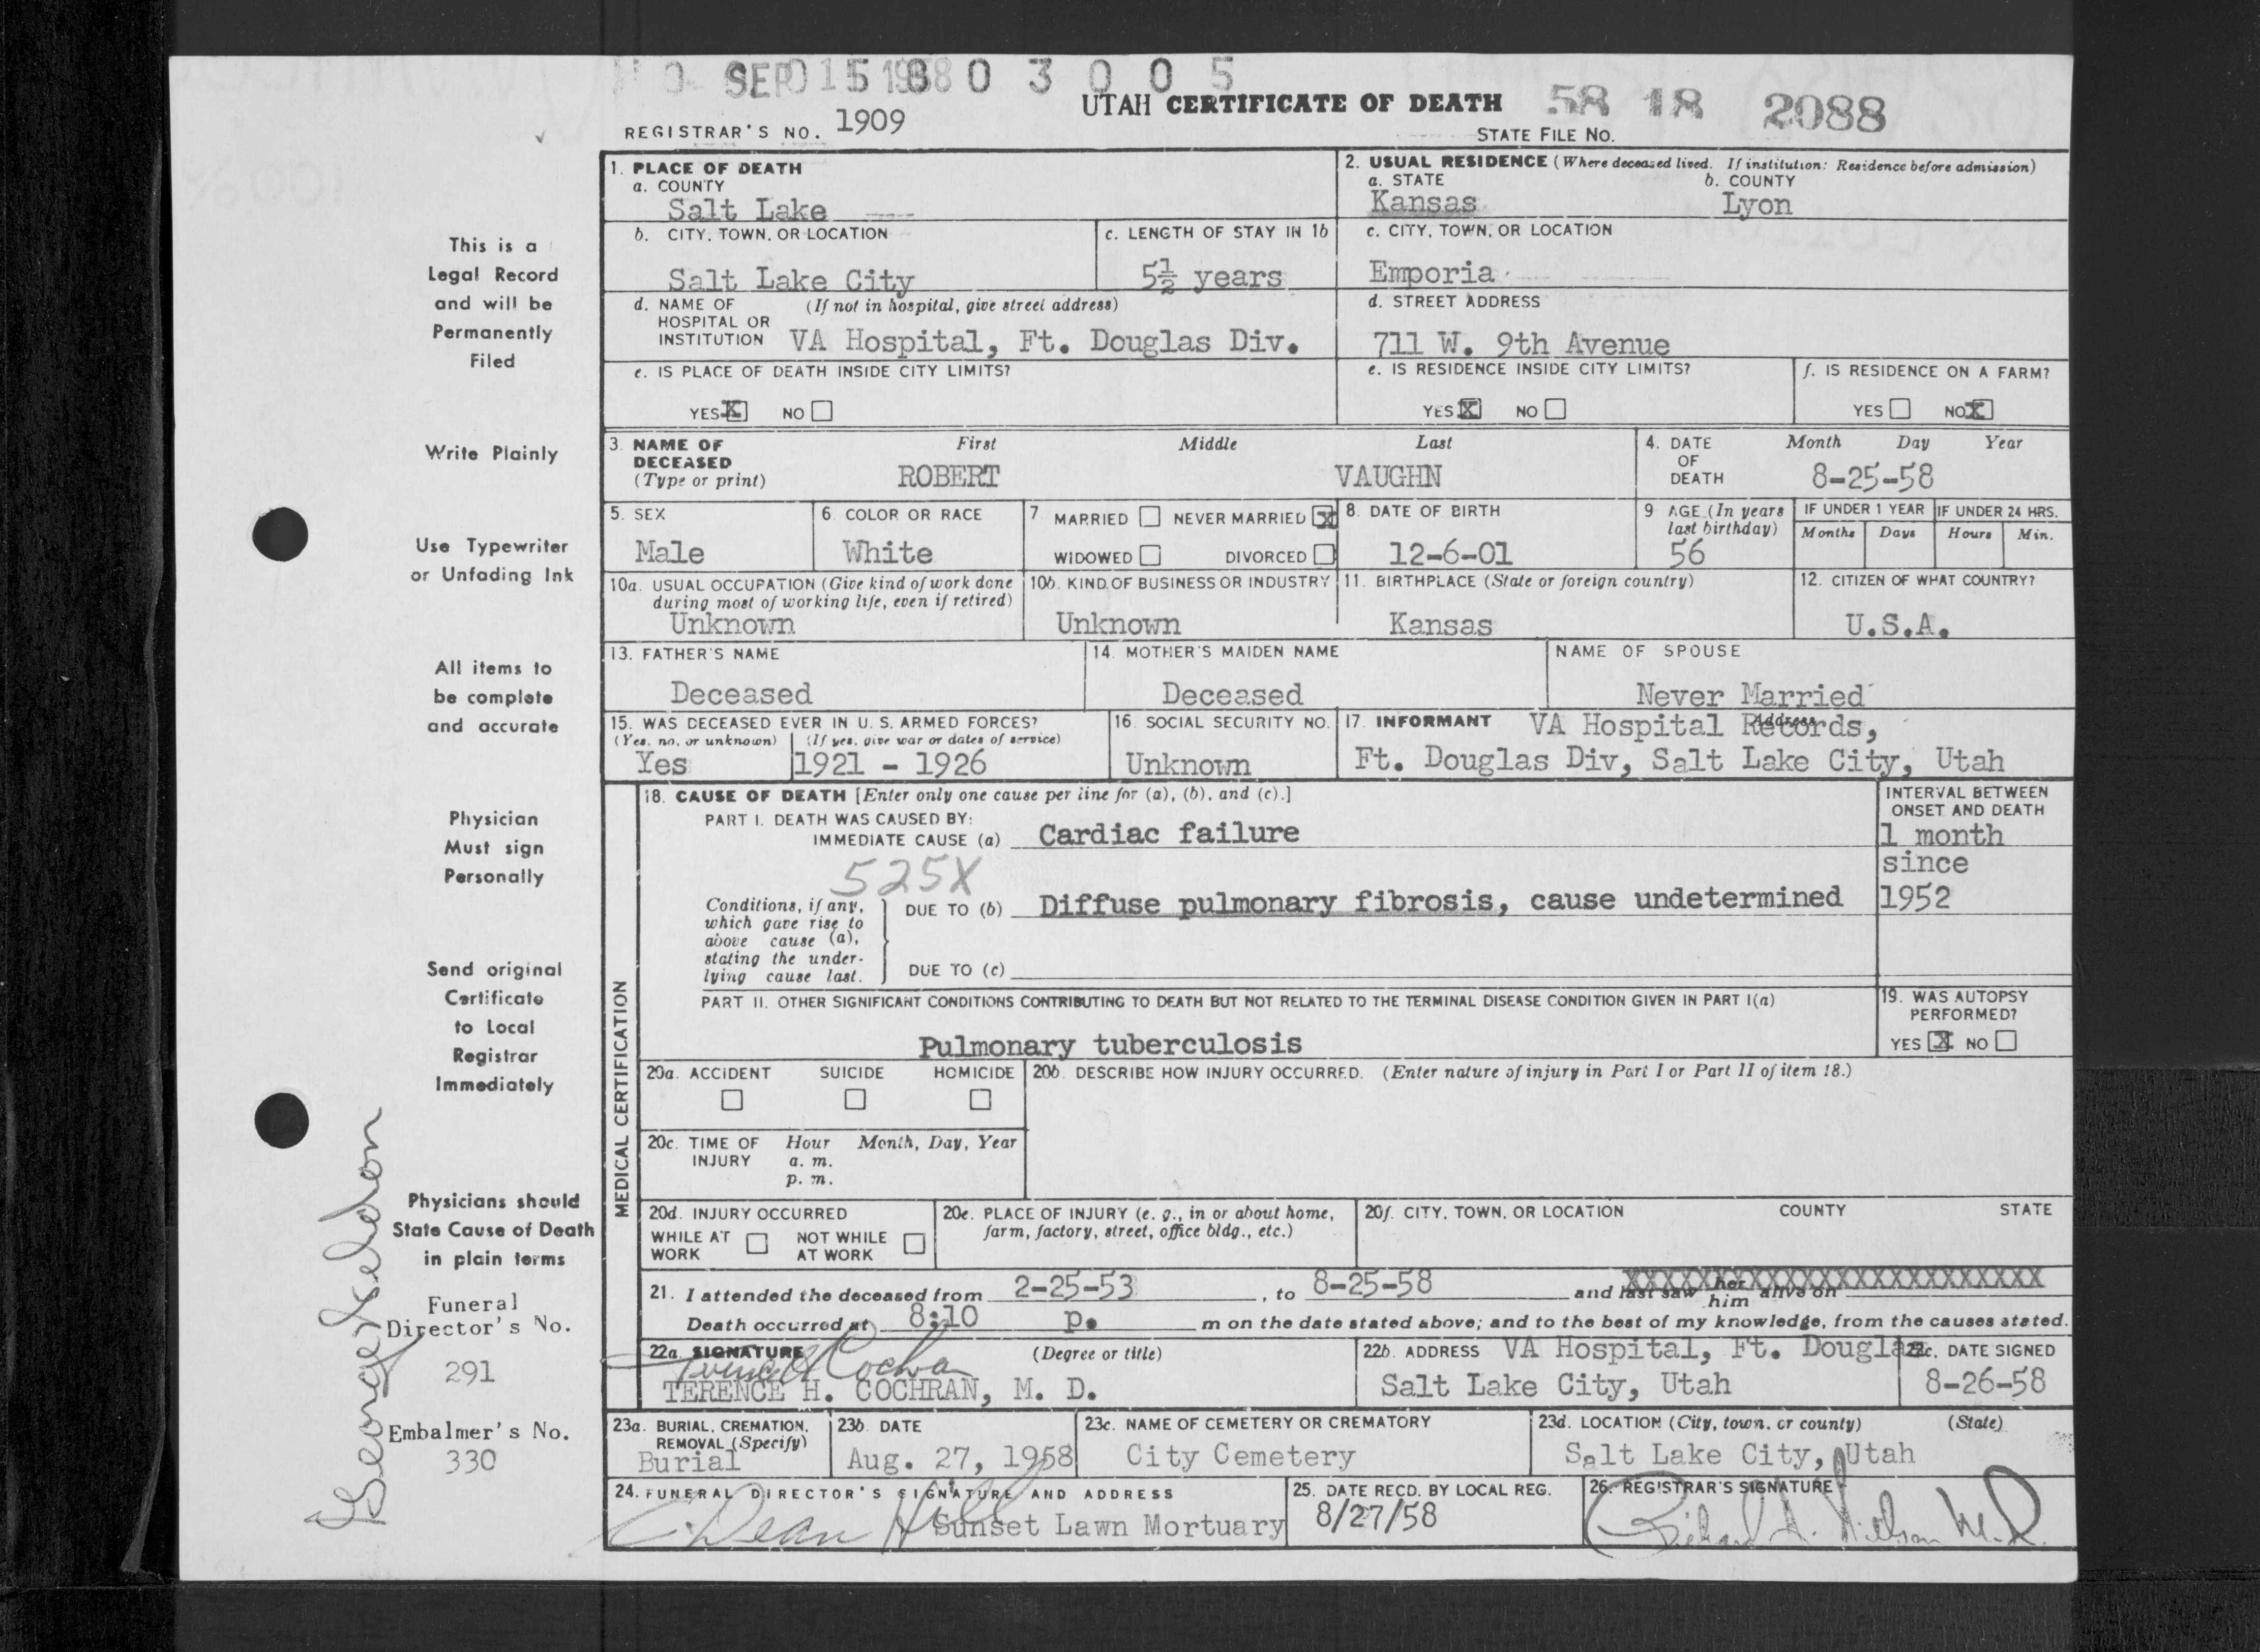 SEP 15 1958
0 3 0 0 5
UTAH CERTIFICATE OF DEATH 58 18 2088
REGISTRAR'S NO. 1909
STATE FILE NO.
This is a
Legal Record
and will be
Permanently
Filed
Write Plainly
Use Typewriter
or Unfading Ink
All items to
be complete
and accurate
Physician
Must sign
Personally
Send original
Certificate
to Local
Registrar
Immediately
Physicians should
State Cause of Death
in plain terms
Funeral
Director's No.
291
Embalmer's No.
330
George
1. PLACE OF DEATH
a. COUNTY
Salt Lake
b. CITY, TOWN, OR LOCATION
Salt Lake City
c. LENGTH OF STAY IN 1b
5½ years
d. NAME OF (If not in hospital, give street address)
HOSPITAL OR
INSTITUTION VA Hospital, Ft. Douglas Div.
e. IS PLACE OF DEATH INSIDE CITY LIMITS?
YES X NO
2. USUAL RESIDENCE (Where deceased lived. If institution: Residence before admission)
a. STATE b. COUNTY
Kansas Lyon
c. CITY, TOWN, OR LOCATION
Emporia
d. STREET ADDRESS
711 W. 9th Avenue
e. IS RESIDENCE INSIDE CITY LIMITS?
YES X NO
f. IS RESIDENCE ON A FARM?
YES NO X
3. NAME OF First Middle Last
DECEASED
(Type or print) ROBERT VAUGHN
4. DATE Month Day Year
OF
DEATH 8-25-58
5. SEX
Male
6. COLOR OR RACE
White
7. MARRIED NEVER MARRIED X
WIDOWED DIVORCED
8. DATE OF BIRTH
12-6-01
9. AGE (In years
last birthday)
56
IF UNDER 1 YEAR IF UNDER 24 HRS.
Months Days Hours Min.
10a. USUAL OCCUPATION (Give kind of work done
during most of working life, even if retired)
Unknown
10b. KIND OF BUSINESS OR INDUSTRY
Unknown
11. BIRTHPLACE (State or foreign country)
Kansas
12. CITIZEN OF WHAT COUNTRY?
U.S.A.
13. FATHER'S NAME
Deceased
14. MOTHER'S MAIDEN NAME
Deceased
NAME OF SPOUSE
Never Married
15. WAS DECEASED EVER IN U. S. ARMED FORCES?
(Yes, no, or unknown) (If yes, give war or dates of service)
Yes 1921 - 1926
16. SOCIAL SECURITY NO.
Unknown
17. INFORMANT VA Hospital Records,
Address
Ft. Douglas Div, Salt Lake City, Utah
MEDICAL CERTIFICATION
18. CAUSE OF DEATH [Enter only one cause per line for (a), (b), and (c).]
PART I. DEATH WAS CAUSED BY:
IMMEDIATE CAUSE (a) Cardiac failure
525X
Conditions, if any,
which gave rise to
above cause (a),
stating the under-
lying cause last.
DUE TO (b) Diffuse pulmonary fibrosis, cause undetermined
DUE TO (c)
INTERVAL BETWEEN
ONSET AND DEATH
1 month
since
1952
PART II. OTHER SIGNIFICANT CONDITIONS CONTRIBUTING TO DEATH BUT NOT RELATED TO THE TERMINAL DISEASE CONDITION GIVEN IN PART I(a)
Pulmonary tuberculosis
19. WAS AUTOPSY
PERFORMED?
YES X NO
20a. ACCIDENT SUICIDE HOMICIDE
20b. DESCRIBE HOW INJURY OCCURRED. (Enter nature of injury in Part I or Part II of item 18.)
20c. TIME OF Hour Month, Day, Year
INJURY a. m.
p. m.
20d. INJURY OCCURRED
WHILE AT NOT WHILE
WORK AT WORK
20e. PLACE OF INJURY (e. g., in or about home,
farm, factory, street, office bldg., etc.)
20f. CITY, TOWN, OR LOCATION COUNTY STATE
21. I attended the deceased from 2-25-53, to 8-25-58 and last saw her him alive on XXXXXXXXXXXXXXXXXXXXXXXX
Death occurred at 8:10 p. m on the date stated above; and to the best of my knowledge, from the causes stated.
22a. SIGNATURE (Degree or title)
Terence H Cochran
TERENCE H. COCHRAN, M. D.
22b. ADDRESS VA Hospital, Ft. Douglas
Salt Lake City, Utah
22c. DATE SIGNED
8-26-58
23a. BURIAL, CREMATION,
REMOVAL (Specify)
Burial
23b. DATE
Aug. 27, 1958
23c. NAME OF CEMETERY OR CREMATORY
City Cemetery
23d. LOCATION (City, town, or county) (State)
Salt Lake City, Utah
24. FUNERAL DIRECTOR'S SIGNATURE AND ADDRESS
C. Dean Hill
Sunset Lawn Mortuary
25. DATE RECD. BY LOCAL REG.
8/27/58
26. REGISTRAR'S SIGNATURE
Richard A. Nielson M.D.